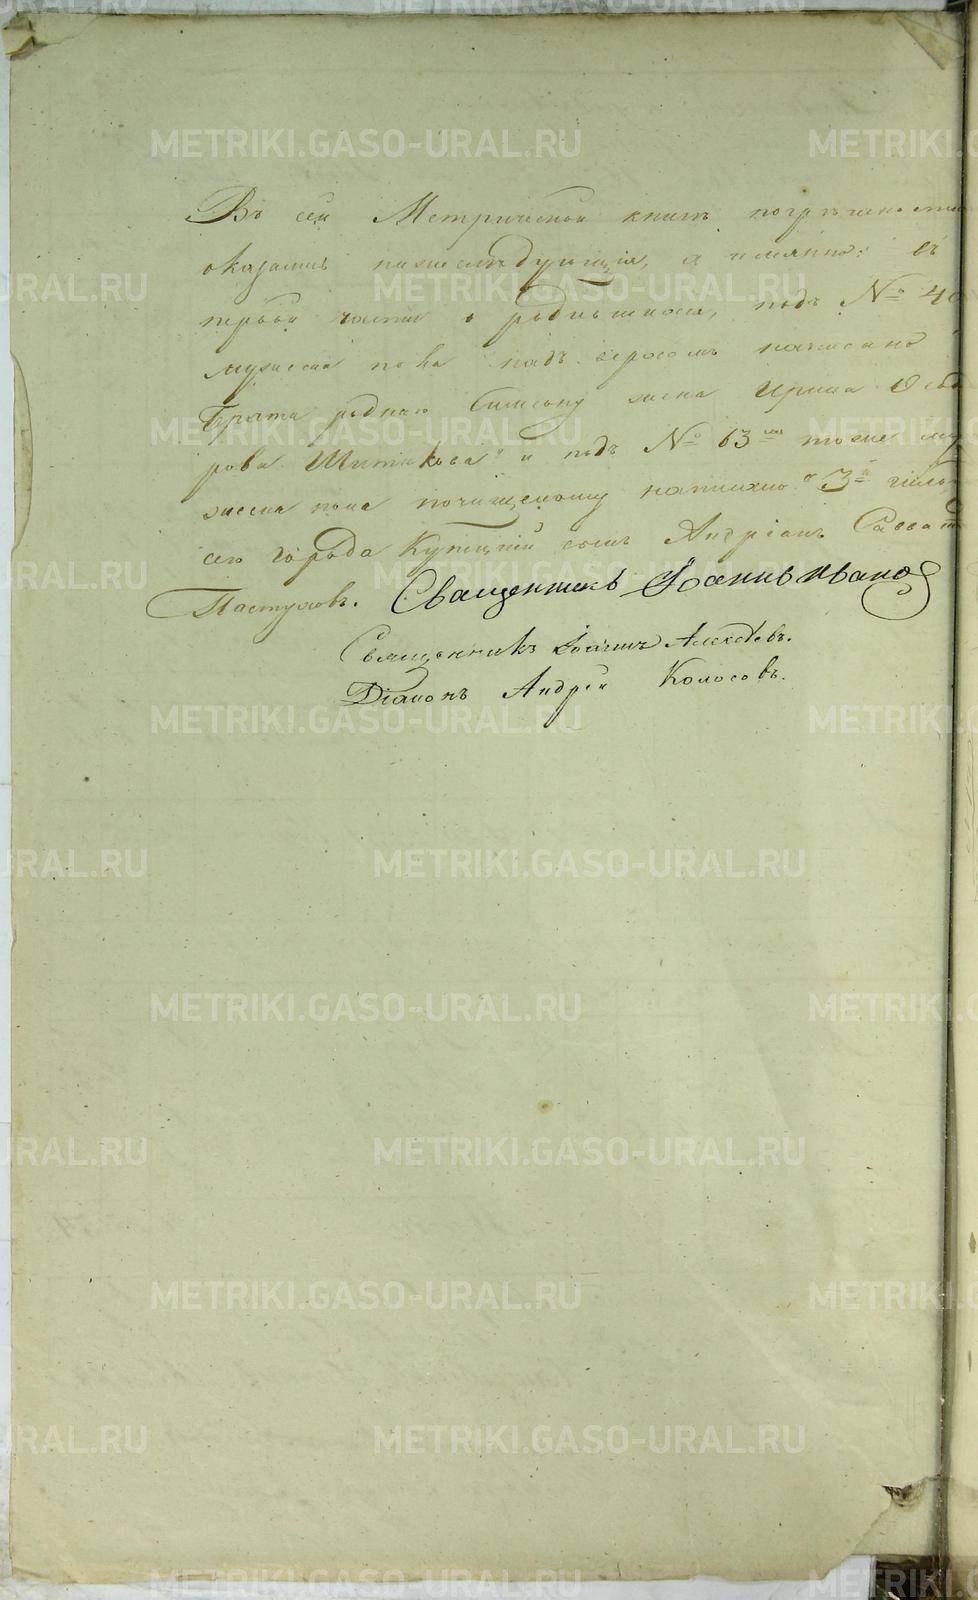 Въ сей Метрической книгѣ погрѣшности
оказались нижеслѣдующія, а имянно: въ
первой части о родившихся, подъ № 40
мужеска пола надъ
Брата роднаго Симеону жена Ирина Ѳедо
рова Шитикова" и подъ № 63мъ тоже му
жеска пола почищеному написано "3й гильд
сего города Купецкій сынъ Андріанъ Савват
Пастуховъ. Священникъ Іоаннъ Ивановъ
Священникъ Іоаннъ Алексѣевъ.
Діаконъ Андрей Колосовъ.
METRIKI.GASO-URAL.RU